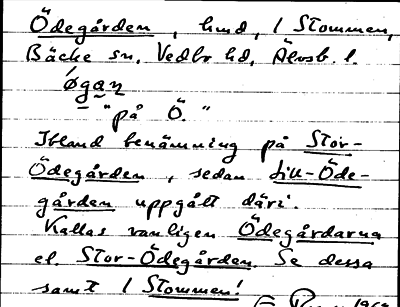 Ödegården, hmd, / Stommen,
Bäcke sn, Vedbo hd, Älvsb. l.
øgaɳ
"på Ö."
Ibland benämning på Stor-
Ödegården, sedan Lill-Öde-
gården uppgått däri.
Kallas vanligen Ödegårdarna
el. Stor-Ödegården. Se dessa
samt / Stommen!